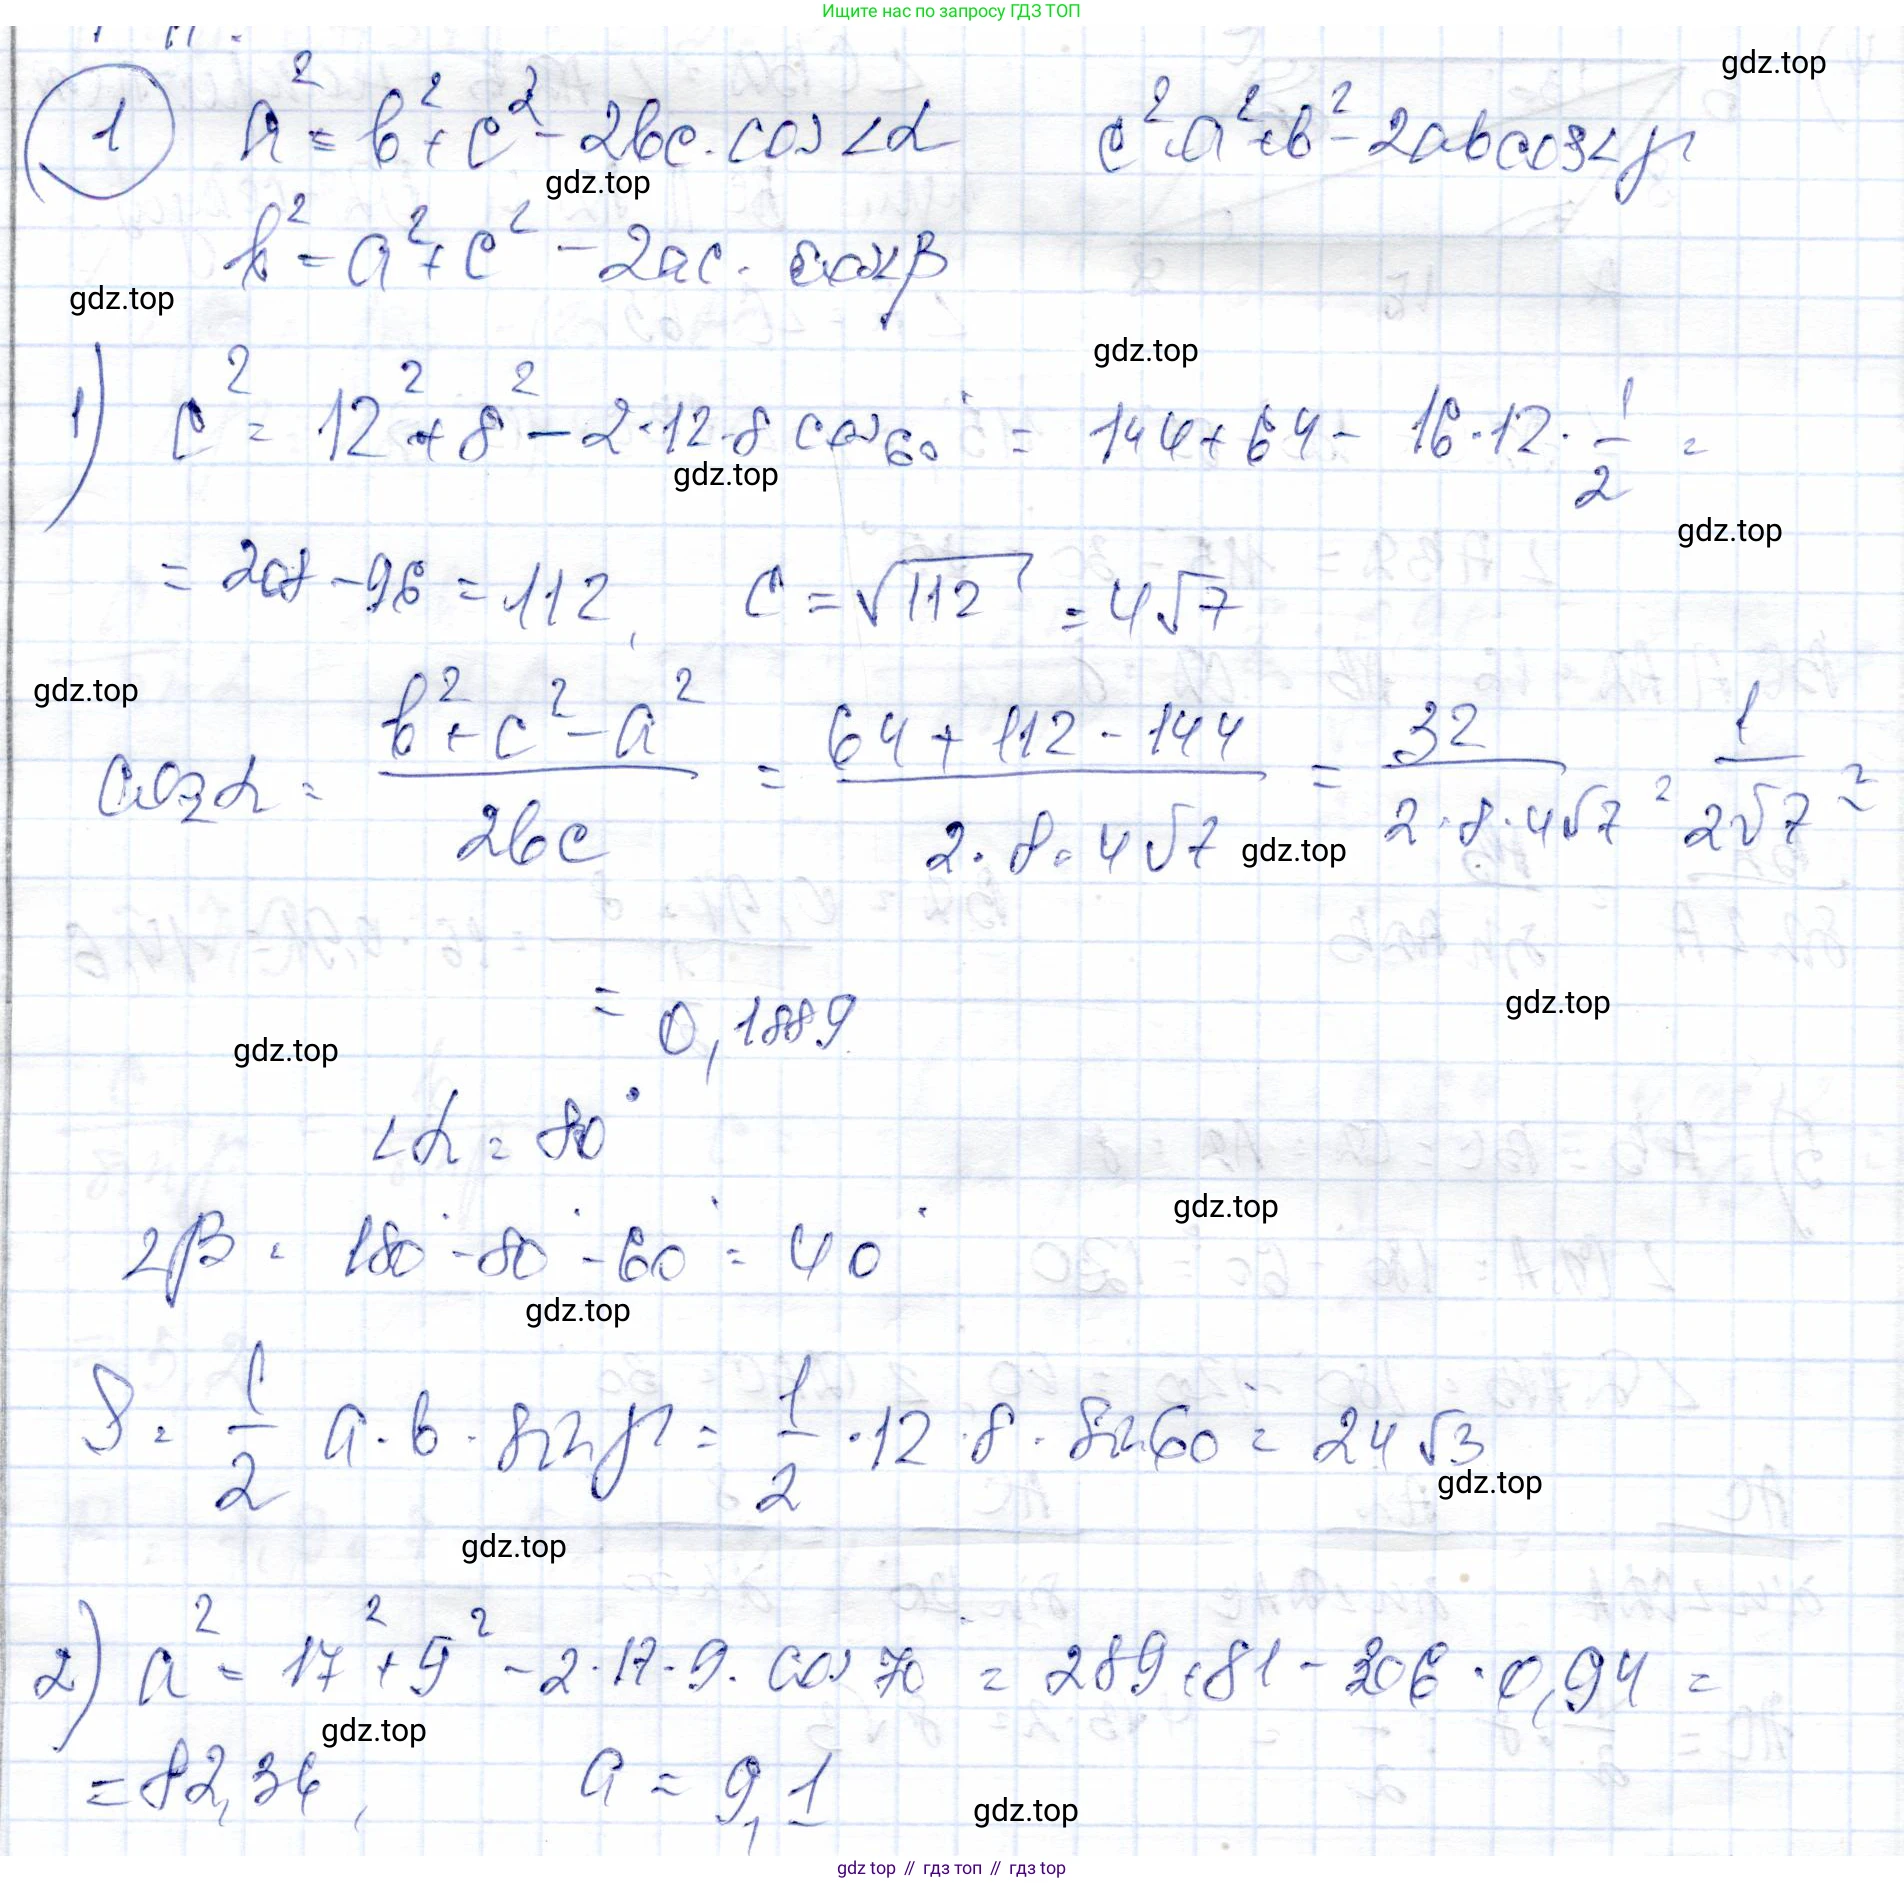 Ищите нас по запросу ГДЗ ТОП
gdz.top
1 a² = b² + c² - 2bc · cos ∠α c² = a² + b² - 2ab cos ∠γ
gdz.top
b² = a² + c² - 2ac · cos ∠β
gdz.top
gdz.top
1) c² = 12² + 8² - 2 · 12 · 8 cos 60° = 144 + 64 - 16 · 12 · 1/2 =
gdz.top
gdz.top
= 208 - 96 = 112, c = √112 = 4√7
gdz.top
cos α = (b² + c² - a²)/(2bc) = (64 + 112 - 144)/(2 · 8 · 4√7) = 32/(2 · 8 · 4√7) = 1/(2√7) =
gdz.top
= 0,1889
gdz.top
gdz.top
∠α = 80°
gdz.top
∠β = 180° - 80° - 60° = 40°
gdz.top
S = 1/2 a · b · sin γ = 1/2 · 12 · 8 · sin 60° = 24√3
gdz.top
gdz.top
2) a² = 17² + 9² - 2 · 17 · 9 · cos 70° = 289 + 81 - 306 · 0,94 =
gdz.top
= 82,36, a = 9,1
gdz.top
gdz top // гдз топ // гдз top